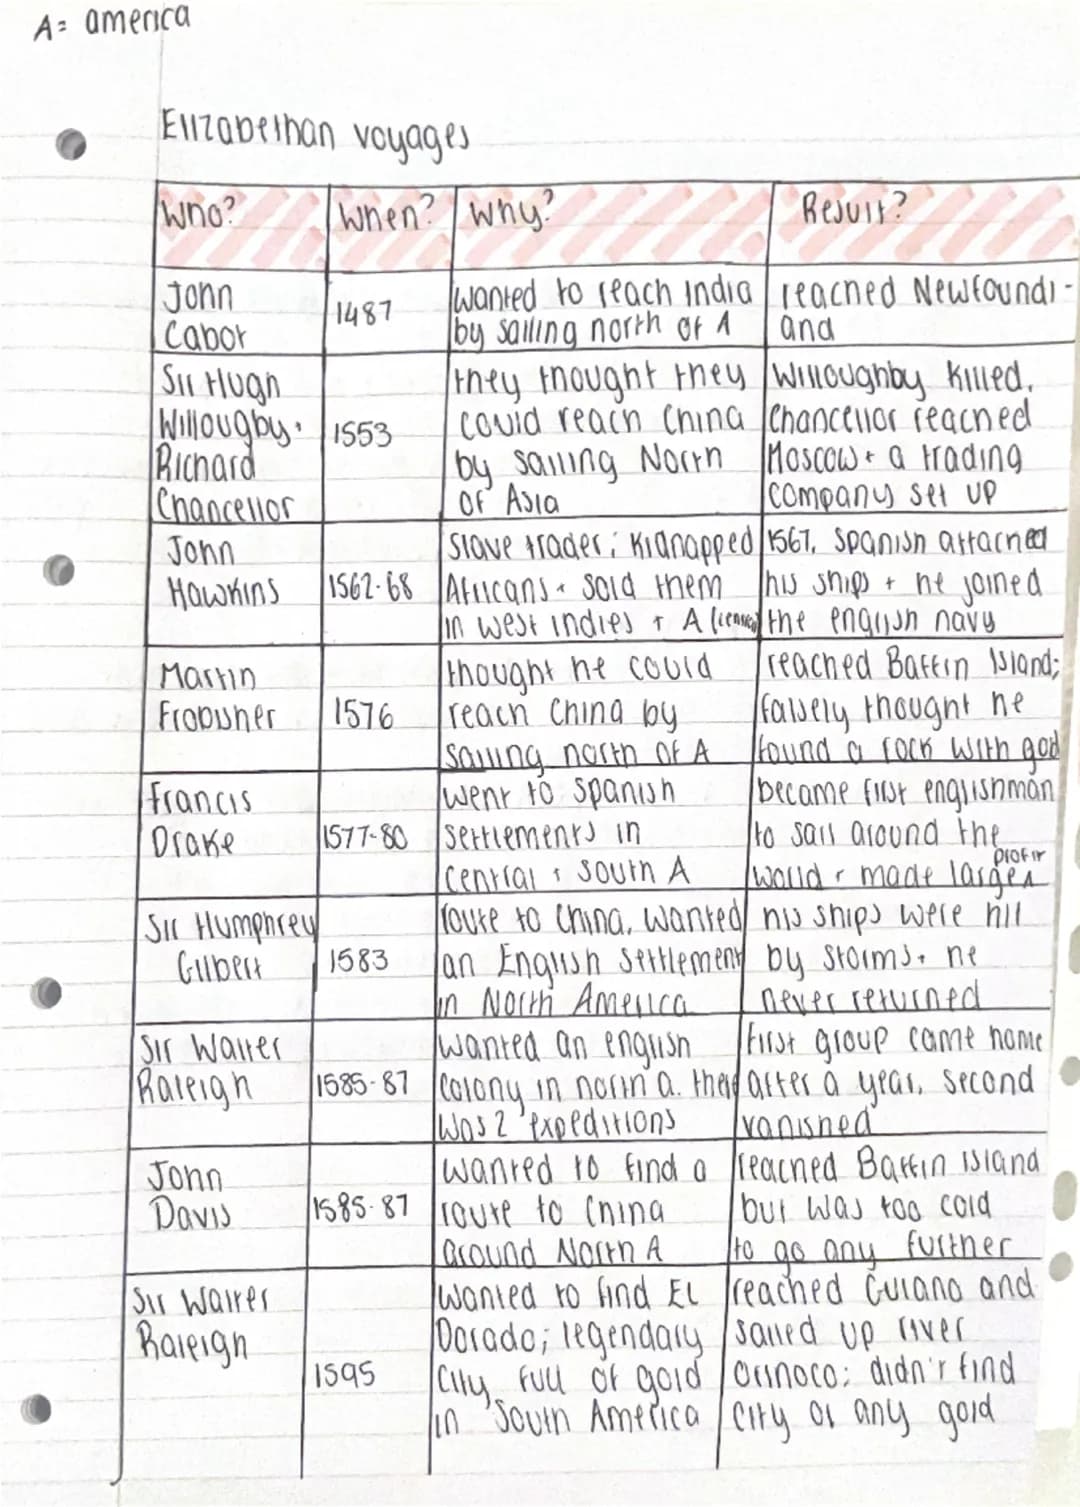 A= america
Elizabethan voyages
Who? When? Why? Result?
John
Cabot
1487
wanted to reach India
by sailing north of A
reached Newfoundl-
and
Sir Hugh
Willougby.
Richard
Chancellor
1553
they thought they
could reach China
by sailing North
of Asia
Willoughby killed.
Chancellor reached
Moscow + a trading
company set up
John
Hawkins
1562-68
Slave trader; kidnapped
Africans + sold them
in west indies + A
1567, Spanish attacked
his ships + he joined
the english navy
Martin
Frobisher
1576
thought he could
reach China by
sailing north of A
reached Baffin Island;
falsely thought he
found a rock with gold
Francis
Drake
1577-80
went to Spanish
settlements in
central + South A
became first englishman
to sail around the
world + made large profit
Sir Humphrey
Gilbert
1583
route to China, wanted
an English settlement
in North America
his ships were hit
by storms + he
never returned
Sir Walter
Raleigh
1585-87
wanted an english
colony in north a. there
was 2 expeditions
First group came home
after a year, second
vanished
John
Davis
1585-87
wanted to find a
route to China
around North A
reached Baffin island
but was too cold
to go any further
Sir Walter
Raleigh
1595
wanted to find El
Dorado; legendary
city full of gold
in South America
reached Guiana and
sailed up river
Orinoco; didn't find
city or any gold